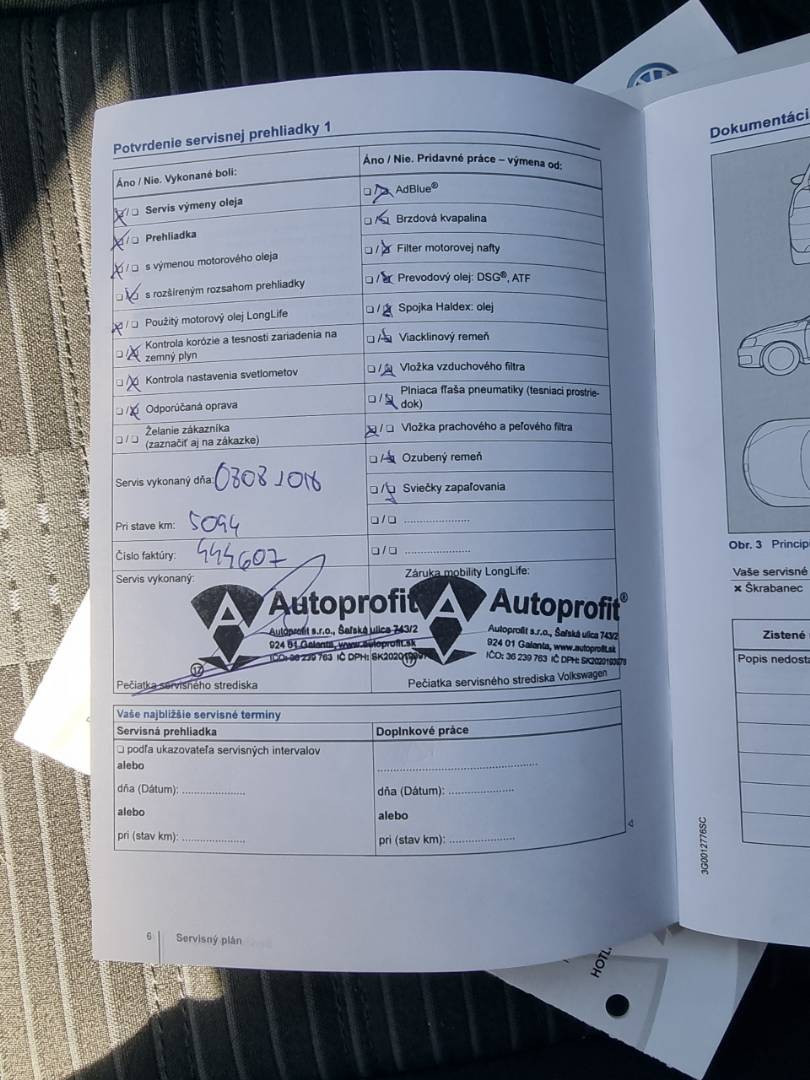 Potvrdenie servisnej prehliadky 1
Áno / Nie. Vykonané boli:
Servis výmeny oleja
Prehliadka
s výmenou motorového oleja
s rozšíreným rozsahom prehliadky
Použitý motorový olej LongLife
Kontrola korózie a tesnosti zariadenia na
zemný plyn
Kontrola nastavenia svetlometov
Odporúčaná oprava
Želanie zákazníka
(zaznačiť aj na zákazke)
Servis vykonaný dňa:
Pri stave km: 5094
Číslo faktúry: 444607
Servis vykonaný:
Autoprofit
Autoprofit s.r.o., Šaľská ulica 743/2
924 01 Galanta, www.autoprofit.sk
IČO: 36 239 763 IČ DPH:
17
Pečiatka servisného strediska
Áno / Nie. Prídavné práce – výmena od:
AdBlue®
Brzdová kvapalina
Filter motorovej nafty
Prevodový olej: DSG®, ATF
Spojka Haldex: olej
Viacklinový remeň
Vložka vzduchového filtra
Plniaca fľaša pneumatiky (tesniaci prostrie-
dok)
Vložka prachového a peľového filtra
Ozubený remeň
Sviečky zapaľovania
Záruka mobility LongLife:
Autoprofit®
Autoprofit s.r.o., Šaľská ulica 743/2
924 01 Galanta, www.autoprofit.sk
IČO: 36 239 763 IČ DPH:
17
Pečiatka servisného strediska Volkswagen
Vaše najbližšie servisné termíny
Servisná prehliadka
podľa ukazovateľa servisných intervalov
alebo
dňa (Dátum): ....................
alebo
pri (stav km): ....................
Doplnkové práce
dňa (Dátum): ....................
alebo
pri (stav km): ....................
6 Servisný plán
Dokumentáci
Obr. 3 Princip
Vaše servisné
✖ Škrabanec
Zistené
Popis nedosta
3G0012776SC
HOTL